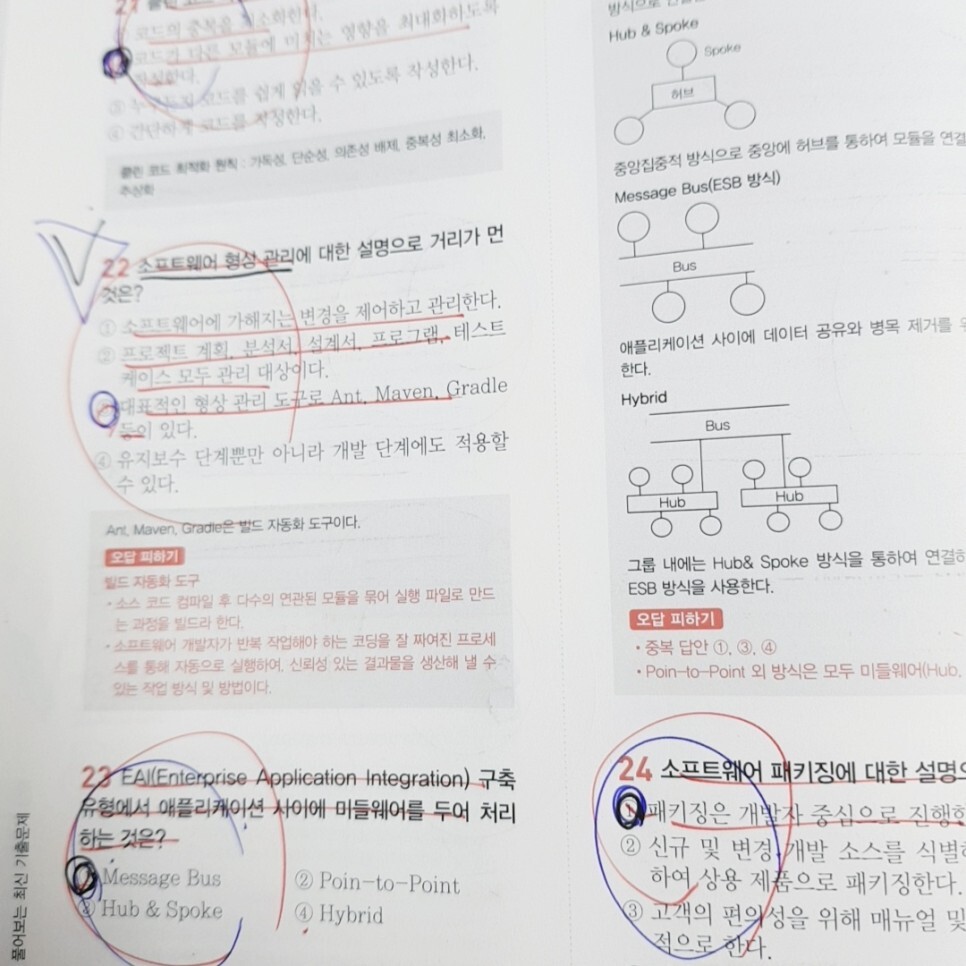 21 클린 코드
코드의 중복을 최소화한다.
코드가 다른 모듈에 미치는 영향을 최대화하도록
작성한다.
③ 누구든지 코드를 쉽게 읽을 수 있도록 작성한다.
④ 간단하게 코드를 작성한다.
클린 코드 최적화 원칙 : 가독성, 단순성, 의존성 배제, 중복성 최소화,
추상화
22 소프트웨어 형상 관리에 대한 설명으로 거리가 먼
것은?
① 소프트웨어에 가해지는 변경을 제어하고 관리한다.
② 프로젝트 계획, 분석서, 설계서, 프로그램, 테스트
케이스 모두 관리 대상이다.
③ 대표적인 형상 관리 도구로 Ant, Maven, Gradle
등이 있다.
④ 유지보수 단계뿐만 아니라 개발 단계에도 적용할
수 있다.
Ant, Maven, Gradle은 빌드 자동화 도구이다.
오답 피하기
빌드 자동화 도구
• 소스 코드 컴파일 후 다수의 연관된 모듈을 묶어 실행 파일로 만드
는 과정을 빌드라 한다.
• 소프트웨어 개발자가 반복 작업해야 하는 코딩을 잘 짜여진 프로세
스를 통해 자동으로 실행하여, 신뢰성 있는 결과물을 생산해 낼 수
있는 작업 방식 및 방법이다.
23 EAI(Enterprise Application Integration) 구축
유형에서 애플리케이션 사이에 미들웨어를 두어 처리
하는 것은?
Message Bus
② Poin-to-Point
③ Hub & Spoke
④ Hybrid
풀어보는 최신 기출문제
방식으로
Hub & Spoke
Spoke
허브
중앙집중적 방식으로 중앙에 허브를 통하여 모듈을 연결
Message Bus(ESB 방식)
Bus
애플리케이션 사이에 데이터 공유와 병목 제거를
한다.
Hybrid
Bus
Hub
Hub
그룹 내에는 Hub& Spoke 방식을 통하여 연결하
ESB 방식을 사용한다.
오답 피하기
• 중복 답안 ①, ③, ④
• Poin-to-Point 외 방식은 모두 미들웨어(Hub,
24 소프트웨어 패키징에 대한 설명으
① 패키징은 개발자 중심으로 진행한
② 신규 및 변경 개발 소스를 식별하
하여 상용 제품으로 패키징한다.
③ 고객의 편의성을 위해 매뉴얼 및
적으로 한다.